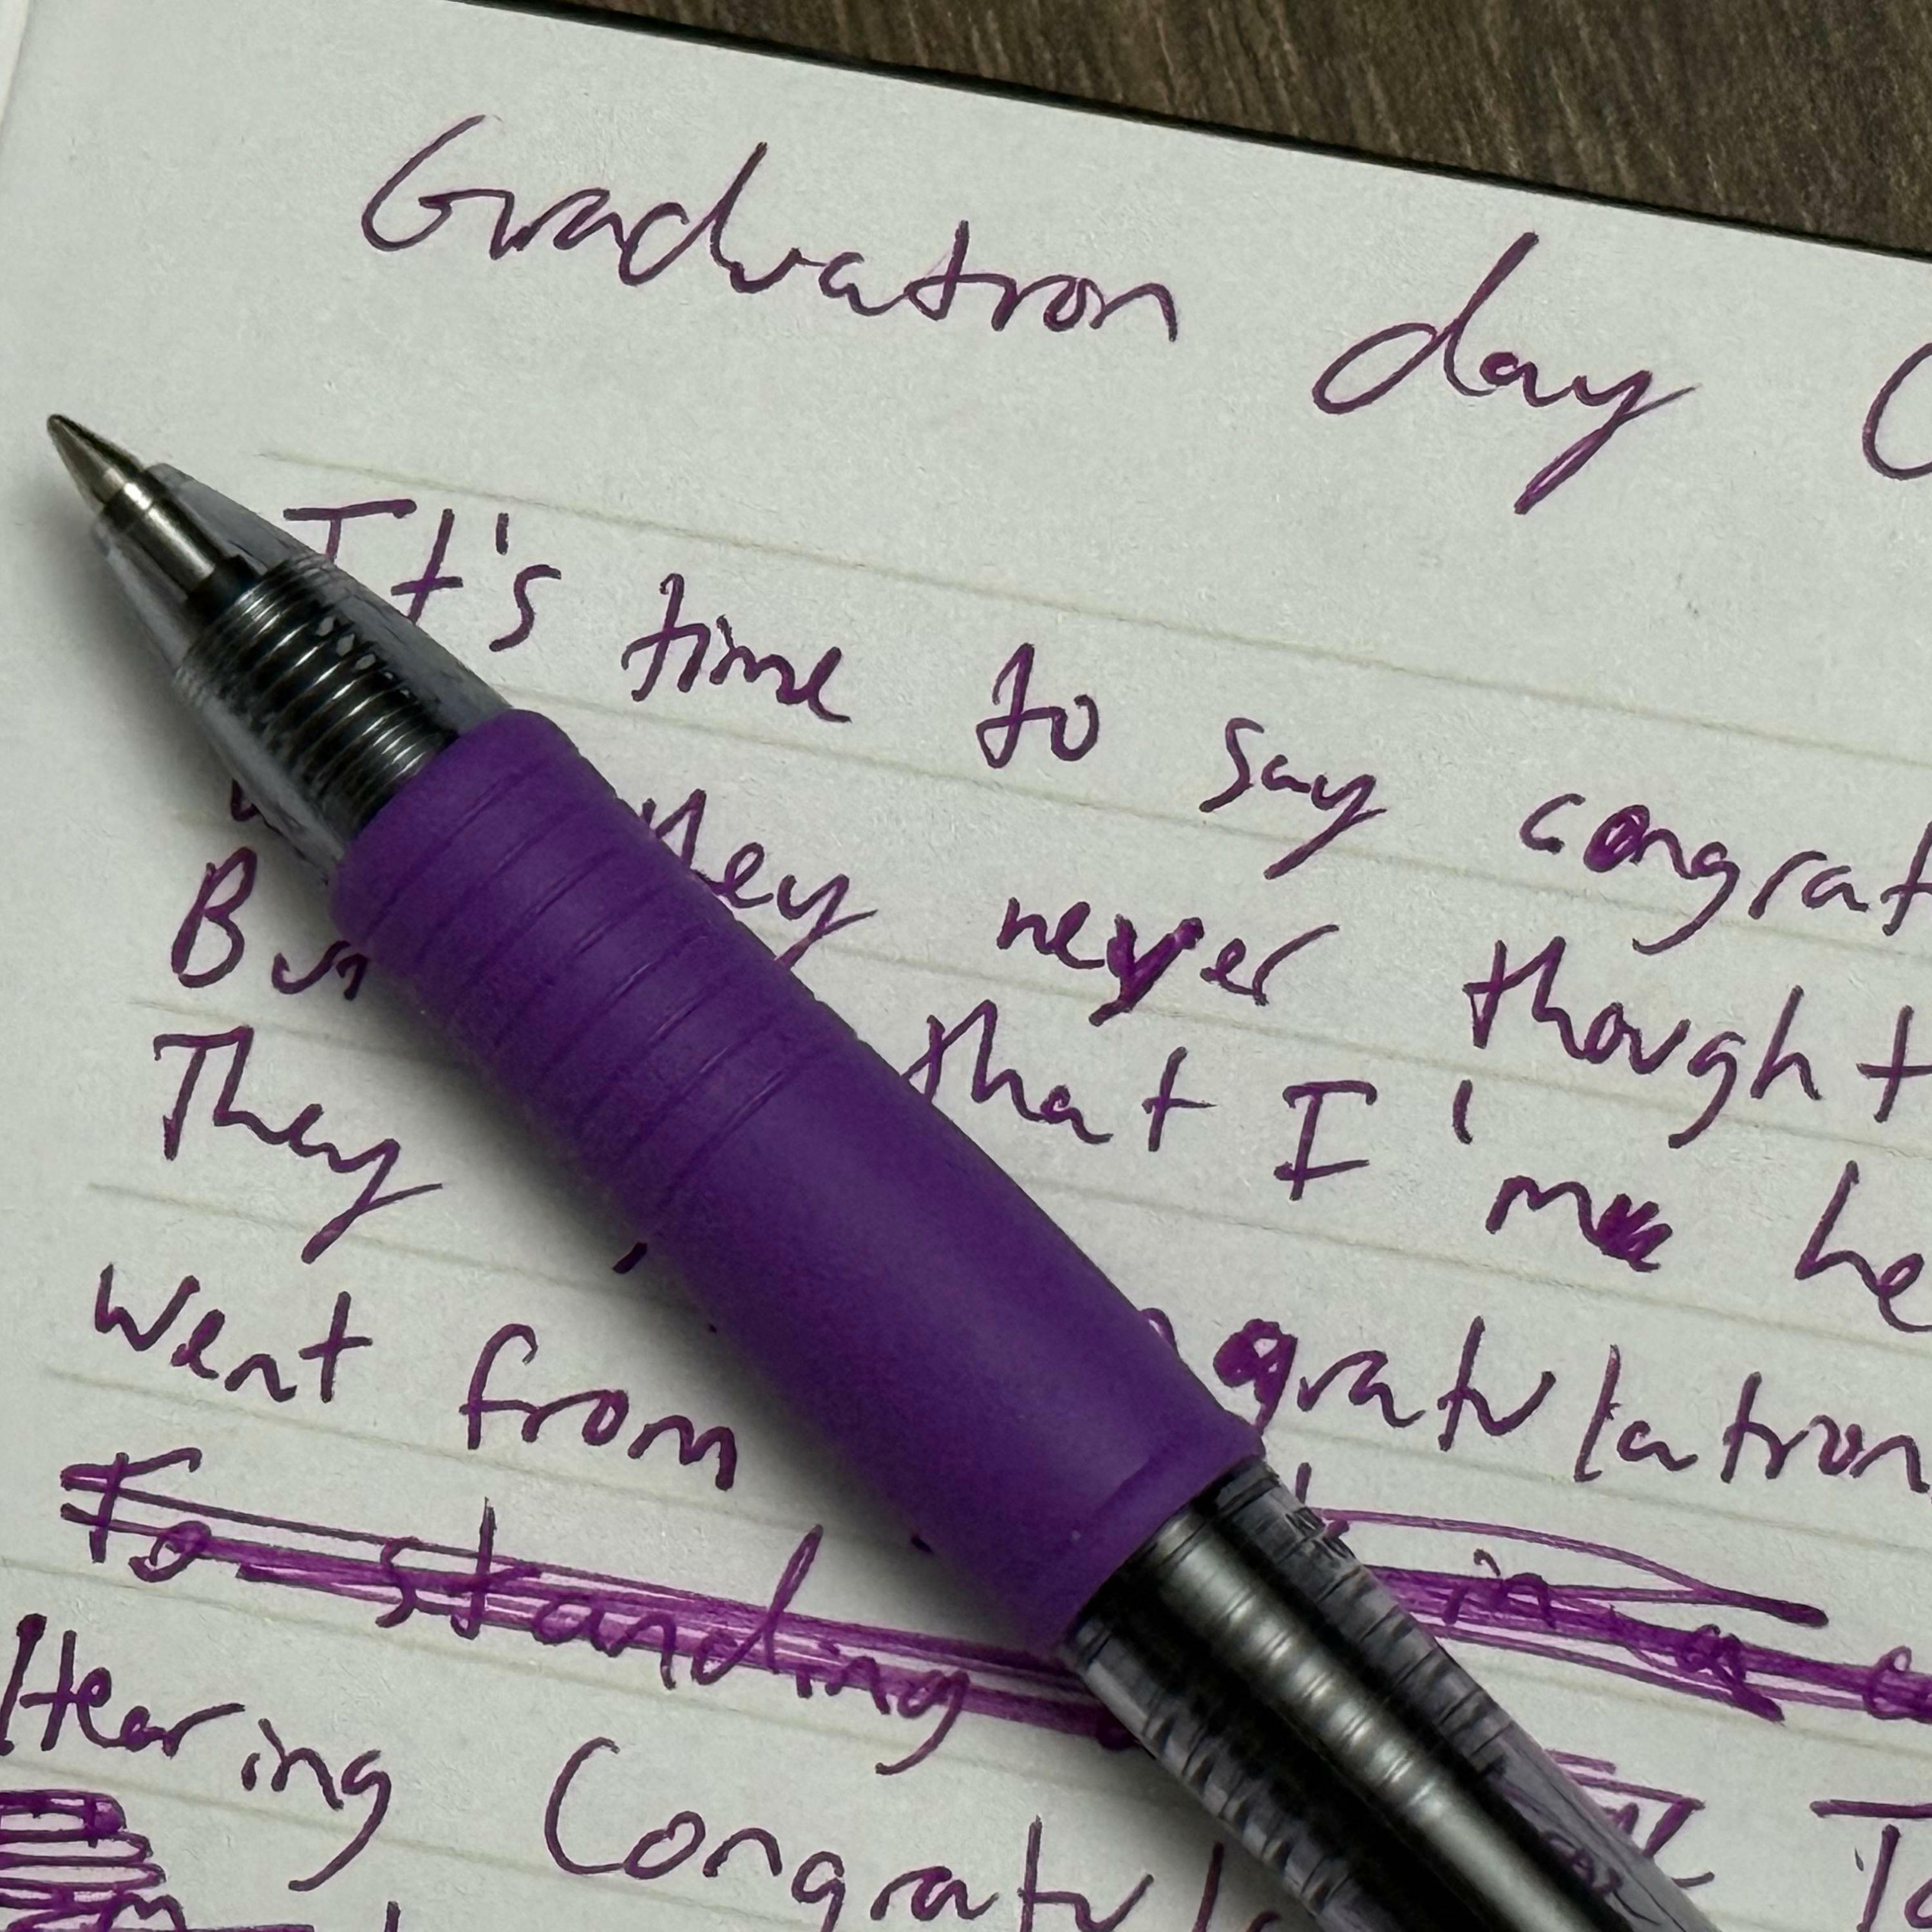 Graduation day
It's time to say congrat
they never thought
But that I'm he
They
congratulation
went from
To standing in a
Hearing Congratul